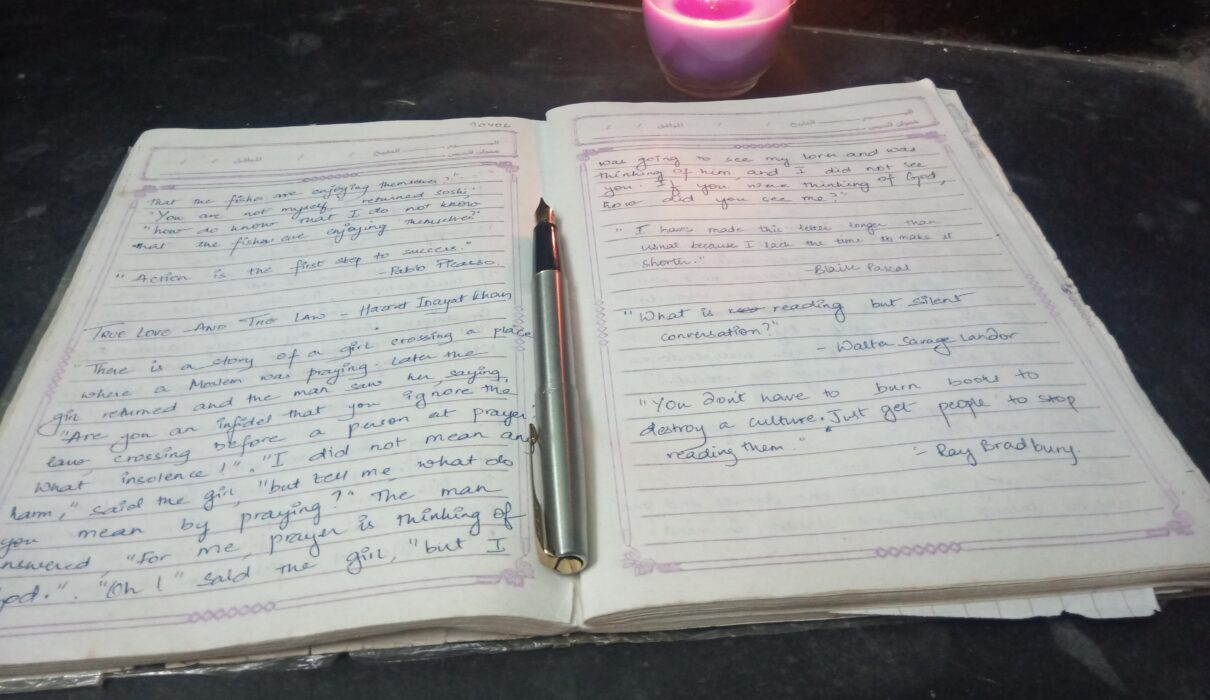 that the fishes are enjoying themselves?".
"You are not myself" returned Soshi.
"how do know that I do not know
that the fishes are enjoying themselves?"
"Action is the first step to success."
-Pablo Picasso.
TRUE LOVE AND THE LAW - Hazrat Inayat Khan
"There is a story of a girl crossing a place
where a Moslem was praying. Later the
girl returned and the man saw her, saying,
"Are you an infidel that you ignore the
law, crossing before a person at prayer?
What insolence!". "I did not mean any
harm," said the girl, "but tell me what do
you mean by praying?" The man
answered, "For me, prayer is thinking of
God.". "Oh!" said the girl, "but I
was going to see my love and was
thinking of him, and I did not see
you. If you were thinking of God,
how did you see me?"
"I have made this letter longer than
usual because I lack the time to make it
shorter."
-Blaise Pascal
"What is reading but silent
conversation?"
- Walter Savage Landor
"You don't have to burn books to
destroy a culture. Just get people to stop
reading them."
- Ray Bradbury.